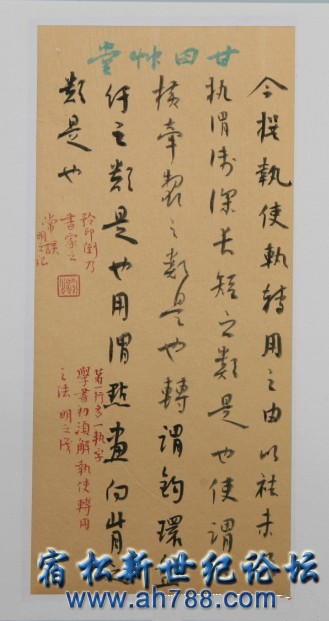 甘田艸堂
今撰執使執轉用之由以祛未
執謂淺深長短之類是也使謂
橫牽掣之類是也轉謂鉤環盤
紆之類是也用謂點畫向背之
類是也
鈐印倒乃
書家之
常誤
明之記
第一行多一執字
學書初須解執使轉用
之法 明之
宿松新世纪论坛
www.ah788.com